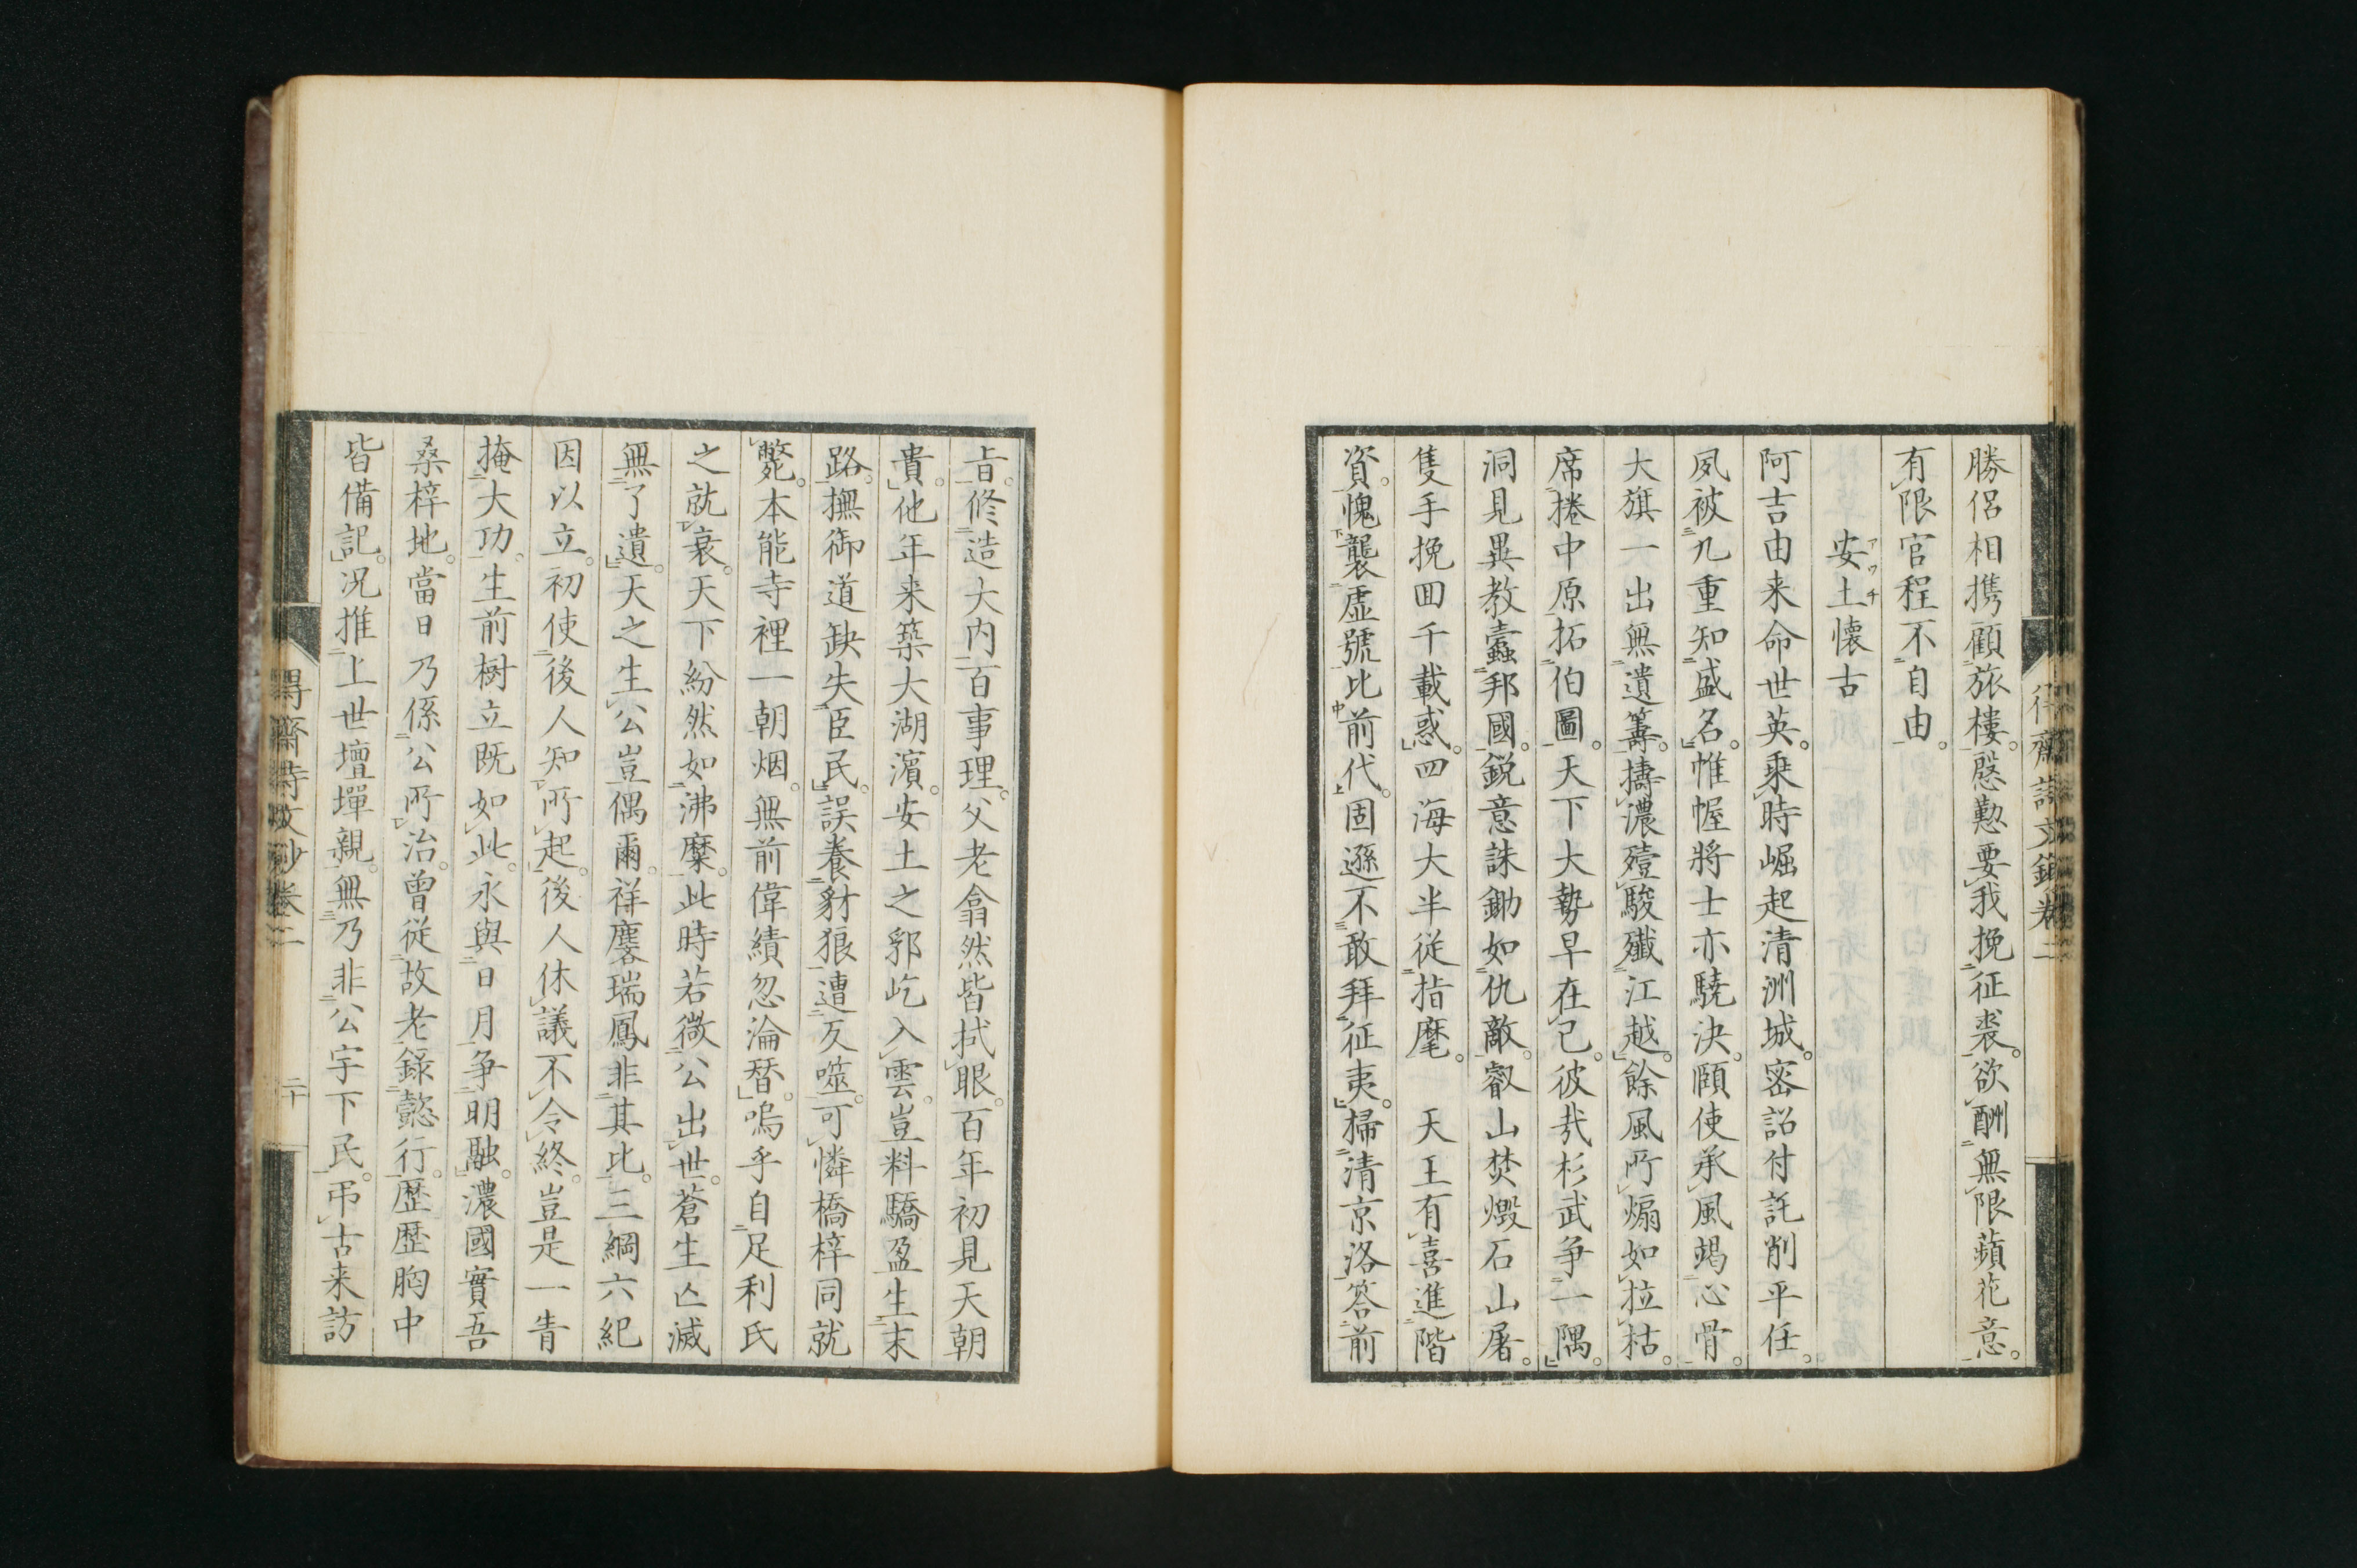 勝侶相携顧旅樓。慇懃要我挽征裘。欲酬無限蘋花意。
有限官程不自由。
安土懷古
アツチ
阿吉由来命世英。乗時崛起清洲城。密詔付託削平任。
夙被九重知盛名。帷幄將士亦驍決。頤使承風竭心骨。
大旗一出無遺籌。擣濃殪駿殲江越。餘風所煽如拉枯。
席捲中原拓伯圖。天下大勢早在己。彼哉杉武爭一隅。
洞見異教蠹邦國。鋭意誅鋤如仇敵。叡山焚燬石山屠。
隻手挽回千載惑。四海大半從指麾。天王有喜進階
資。愧襲虛號比前代。固遜不敢拜征夷。掃清京洛答前
旨。修造大内百事理。父老翕然皆拭眼。百年初見天朝
貴。他年来築大湖濱。安土之郛屹入雲。豈料驕盈生末
路。撫御道缺失臣民。誤養豺狼遭反噬。可憐橋梓同就
斃。本能寺裡一朝烟。無前偉績忽淪替。嗚乎自足利氏
之就衰。天下紛然如沸糜。此時若微公出世。蒼生亡滅
無了遺。天之生公豈偶爾。祥麐瑞鳳非其比。三綱六紀
因以立。初使後人知所起。後人休議不令終。豈是一眚
掩大功。生前樹立既如此。永與日月争明融。濃國實吾
桑梓地。當日乃係公所治。曾從故老錄懿行。歷歷胸中
皆備記。況推上世壇墠親。無乃非公宇下民。弔古来訪
得齋詩文鈔卷二
二十